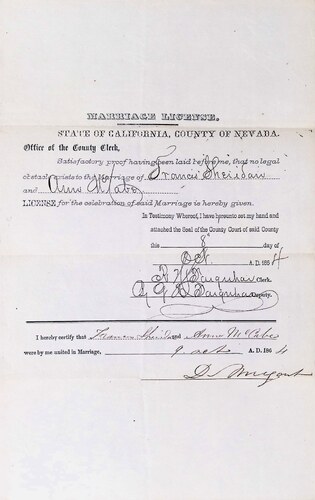 MARRIAGE LICENSE.
STATE OF CALIFORNIA, COUNTY OF NEVADA.
Office of the County Clerk,
Satisfactory proof having been laid before me, that no legal
obstacle exists to the Marriage of Francis Sheridan
and Ann McCabe
LICENSE for the celebration of said Marriage is hereby given.
In Testimony Whereof, I have hereunto set my hand and
attached the Seal of the County Court of said County
this 8 day of
Oct. A. D. 1864
Farquhar Clerk.
Farquhar Deputy.
I hereby certify that Francis and Anne McCabe
were by me united in Marriage, 9 oct A. D. 1864
D.